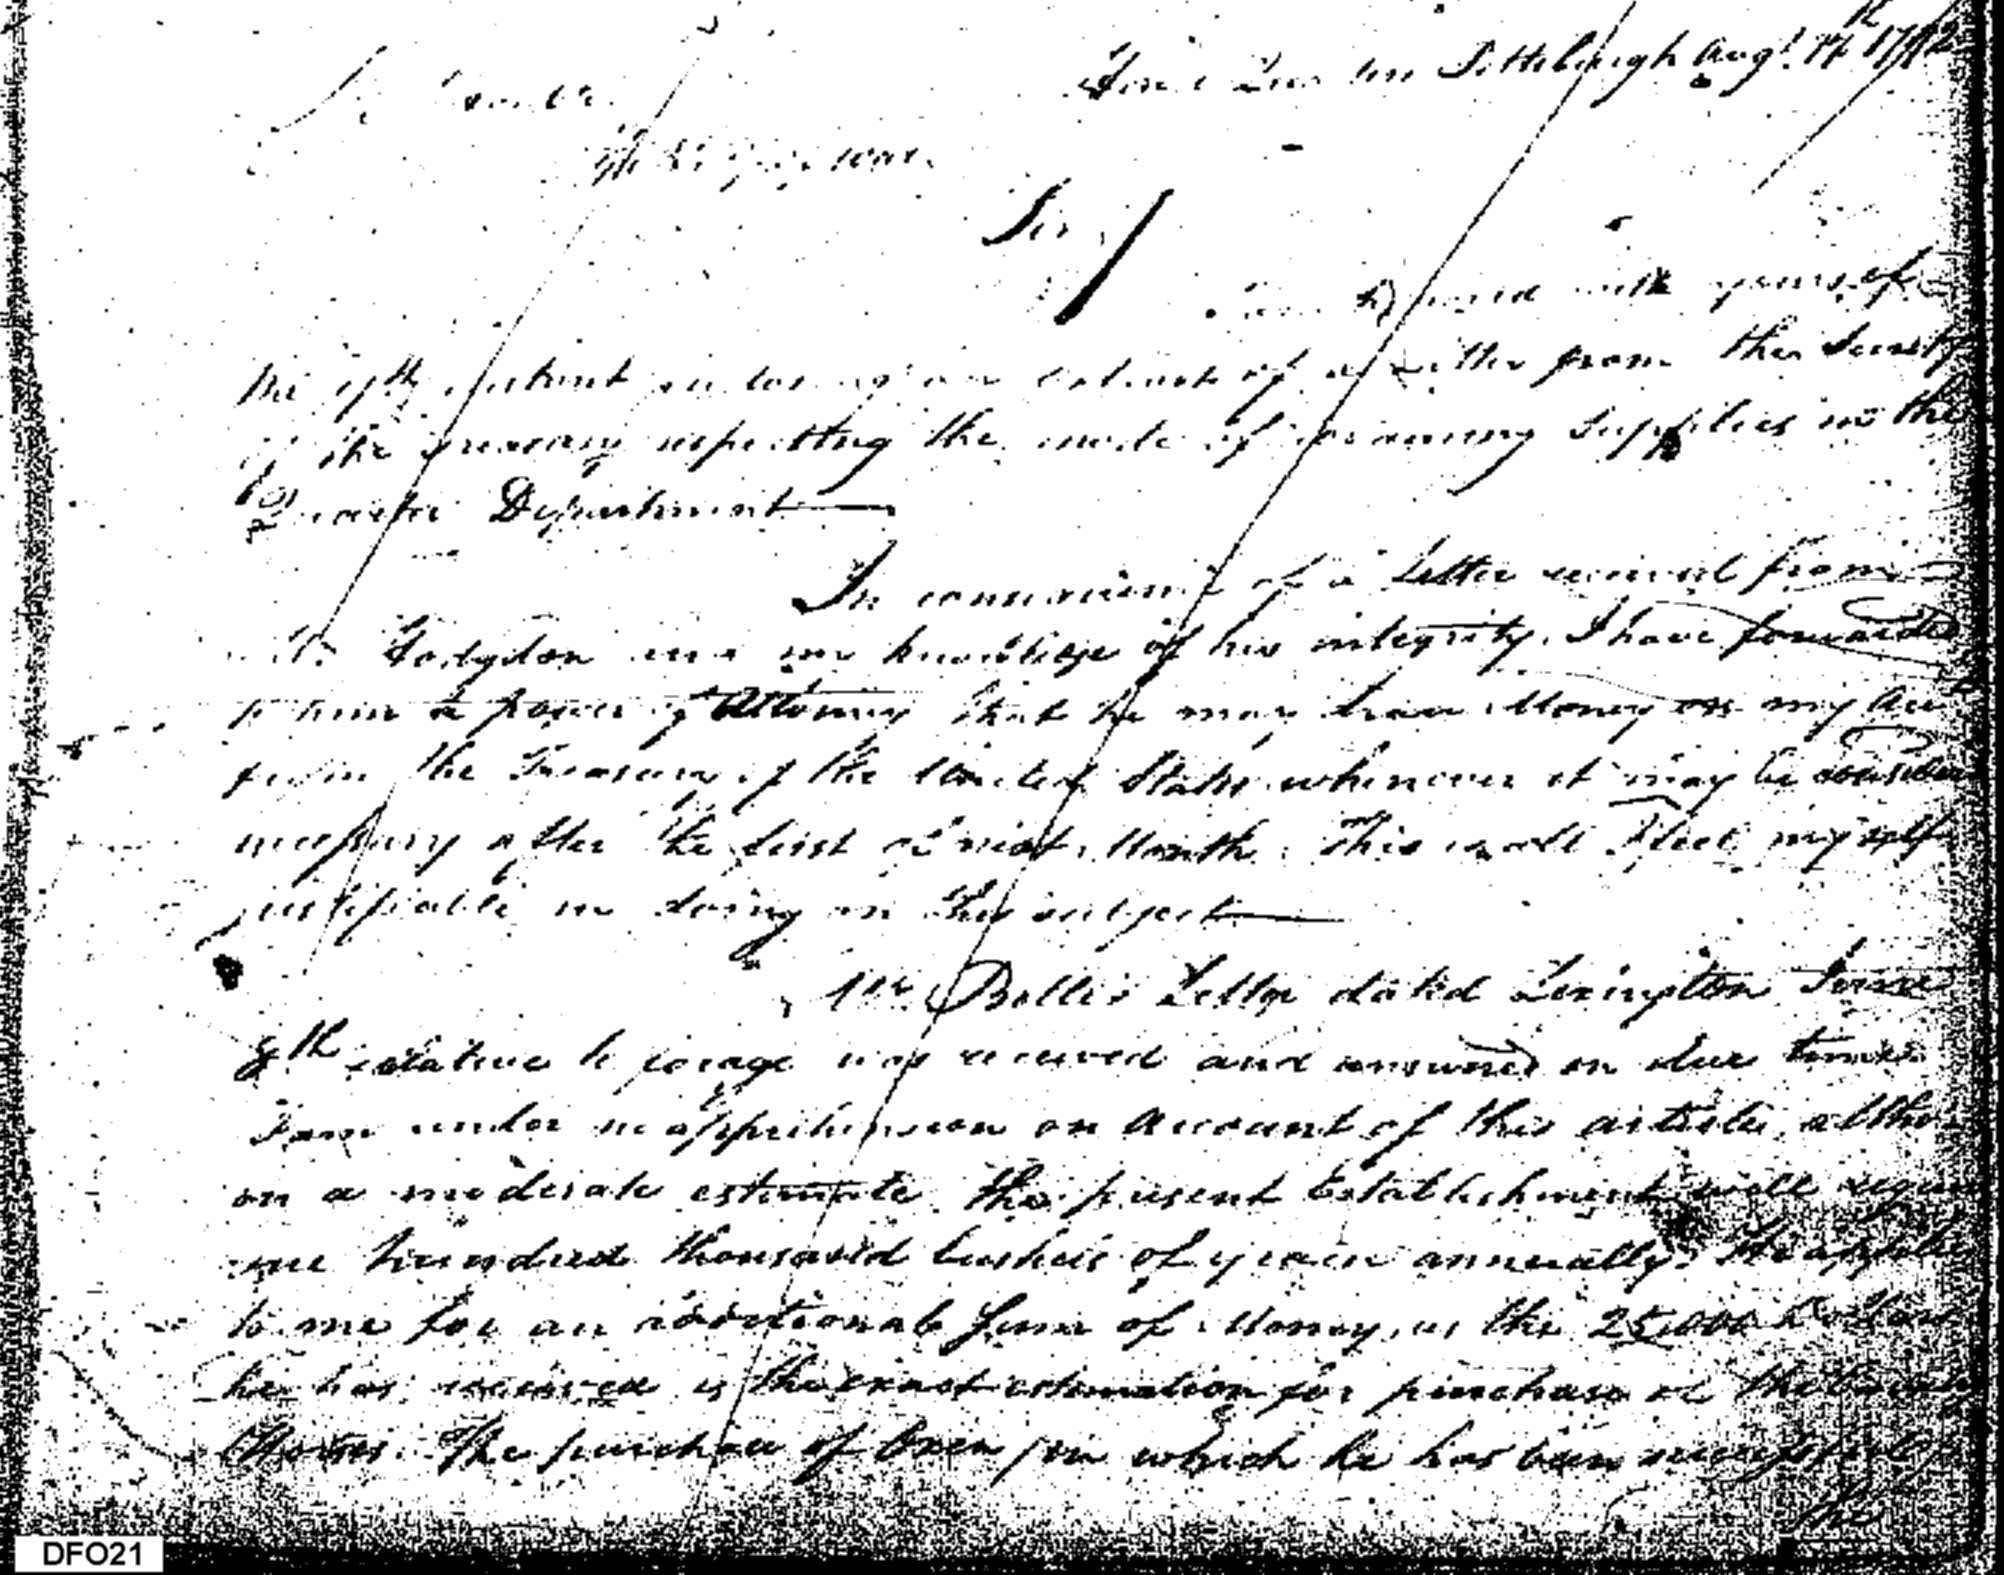 Pittsburgh Augt. 14th 1792
Sir
with yours of
the 7th instant of a Letter from the Secrety
of the Treasury respecting the mode of obtaining Supplies in the
Quarter Department
In consequence of a Letter received from
Mr. Hodgdon and my knowledge of his integrity, I have forwarded
to him a power of Attorney that he may draw Money on my
from the Treasury of the United States whenever it may be considered
necessary after the first of next Month. This is all I feel myself
justifiable in doing on this subject
Mr. Bellis Letter dated Lexington June
8th relative to forage was received and answered in due time
I am under no apprehension on account of this article, altho
on a moderate estimate the present Establishment will require
one hundred thousand bushels of grain annually. He applies
to me for an additional Sum of Money, as the 25,000 Dollars
he has received is the exact estimation for purchase of the
Horses. The purchase of Oxen in which he has been
the
DFO21